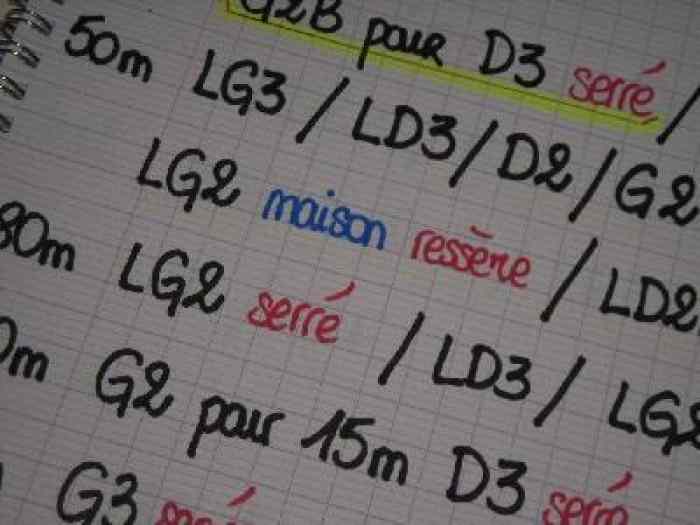 G2B pour D3 serré /
50m LG3 / LD3 / D2 / G2
LG2 maison ressère / LD2
80m LG2 serré / LD3 / LG2
0m G2 pour 15m D3 serré
G3 serré